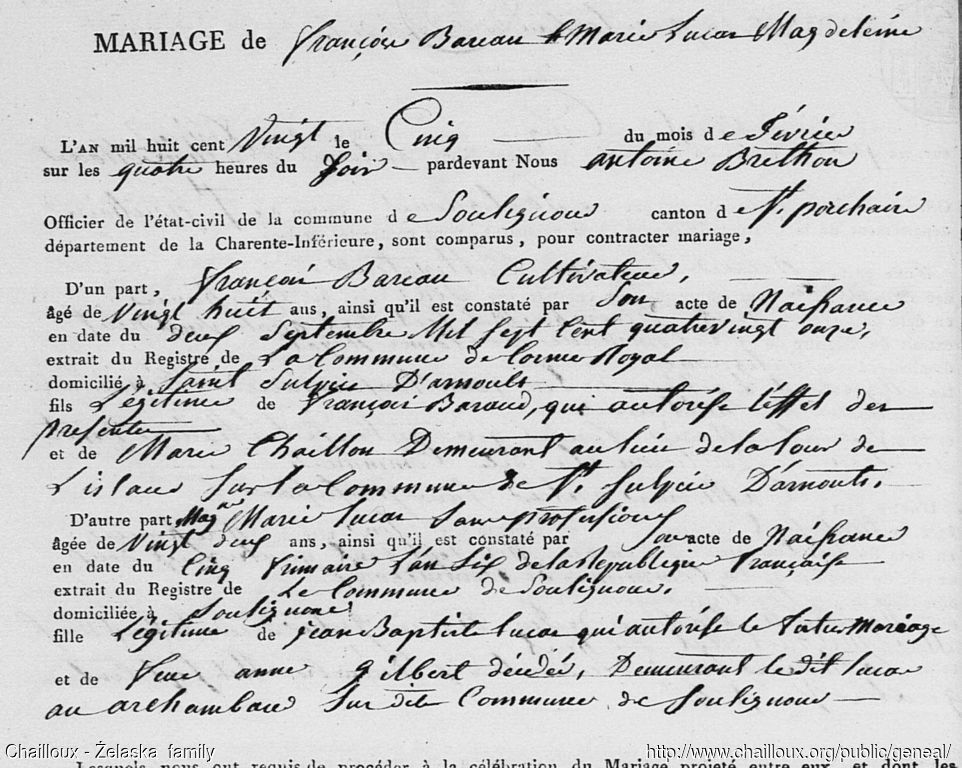 MARIAGE de françois Bareau & Marie Lucas Magdeleine
L'AN mil huit cent Vingt le Cinq du mois de février
sur les quatre heures du Soir pardevant Nous antoine Brethon
Officier de l'état-civil de la commune de Soulignone canton de St. porchaire
département de la Charente-Inférieure, sont comparus, pour contracter mariage,
D'un part, françois Bareau Cultivateur,
âgé de Vingt huit ans, ainsi qu'il est constaté par Son acte de Naissance
en date du deux Septembre Mil Sept Cent quatrevingt onze,
extrait du Registre de La Commune de Corme Royal
domicilié à Saint Sulpice D'arnoults
fils Légitime de françois Baraud, qui autorise l'effet des
presentes
et de Marie Chaillou Demeurant au lieu de la Cour de
L'islaud Sur La Commune de St. Sulpice D'arnoults.
D'autre part, Magne Marie Lucas Sans profession
âgée de Vingt deux ans, ainsi qu'il est constaté par Son acte de Naissance
en date du Cinq frimaire L'an Six de la Republique française
extrait du Registre de La Commune de Soulignone.
domiciliée à Soulignone
fille Légitime de jean Baptiste Lucas qui autorise le futur Mariage
et de feue anne gilbert décédée, Demeurant le dit Lucas
au archambaud Sur dite Commune de Soulignone
Chailloux - Żelaska family http://www.chailloux.org/public/geneal/
Lesquels nous ont requis de procéder à la célébration du Mariage projeté entre eux, et dont les